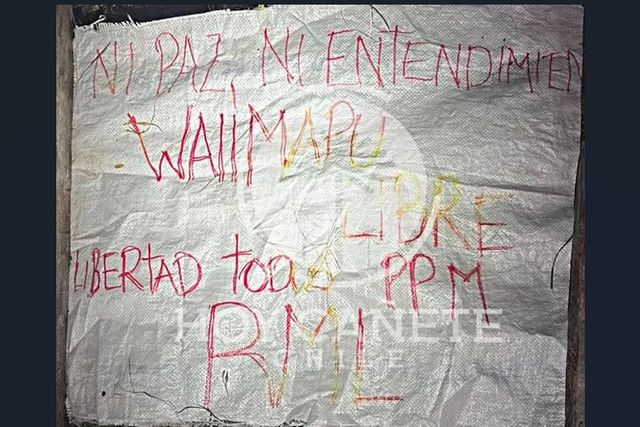 NI PAZ, NI ENTENDIMIEN
WAllMAPU
LIBRE
LIBERTAD todos PPM
RML
HOYCAÑETE
CHILE